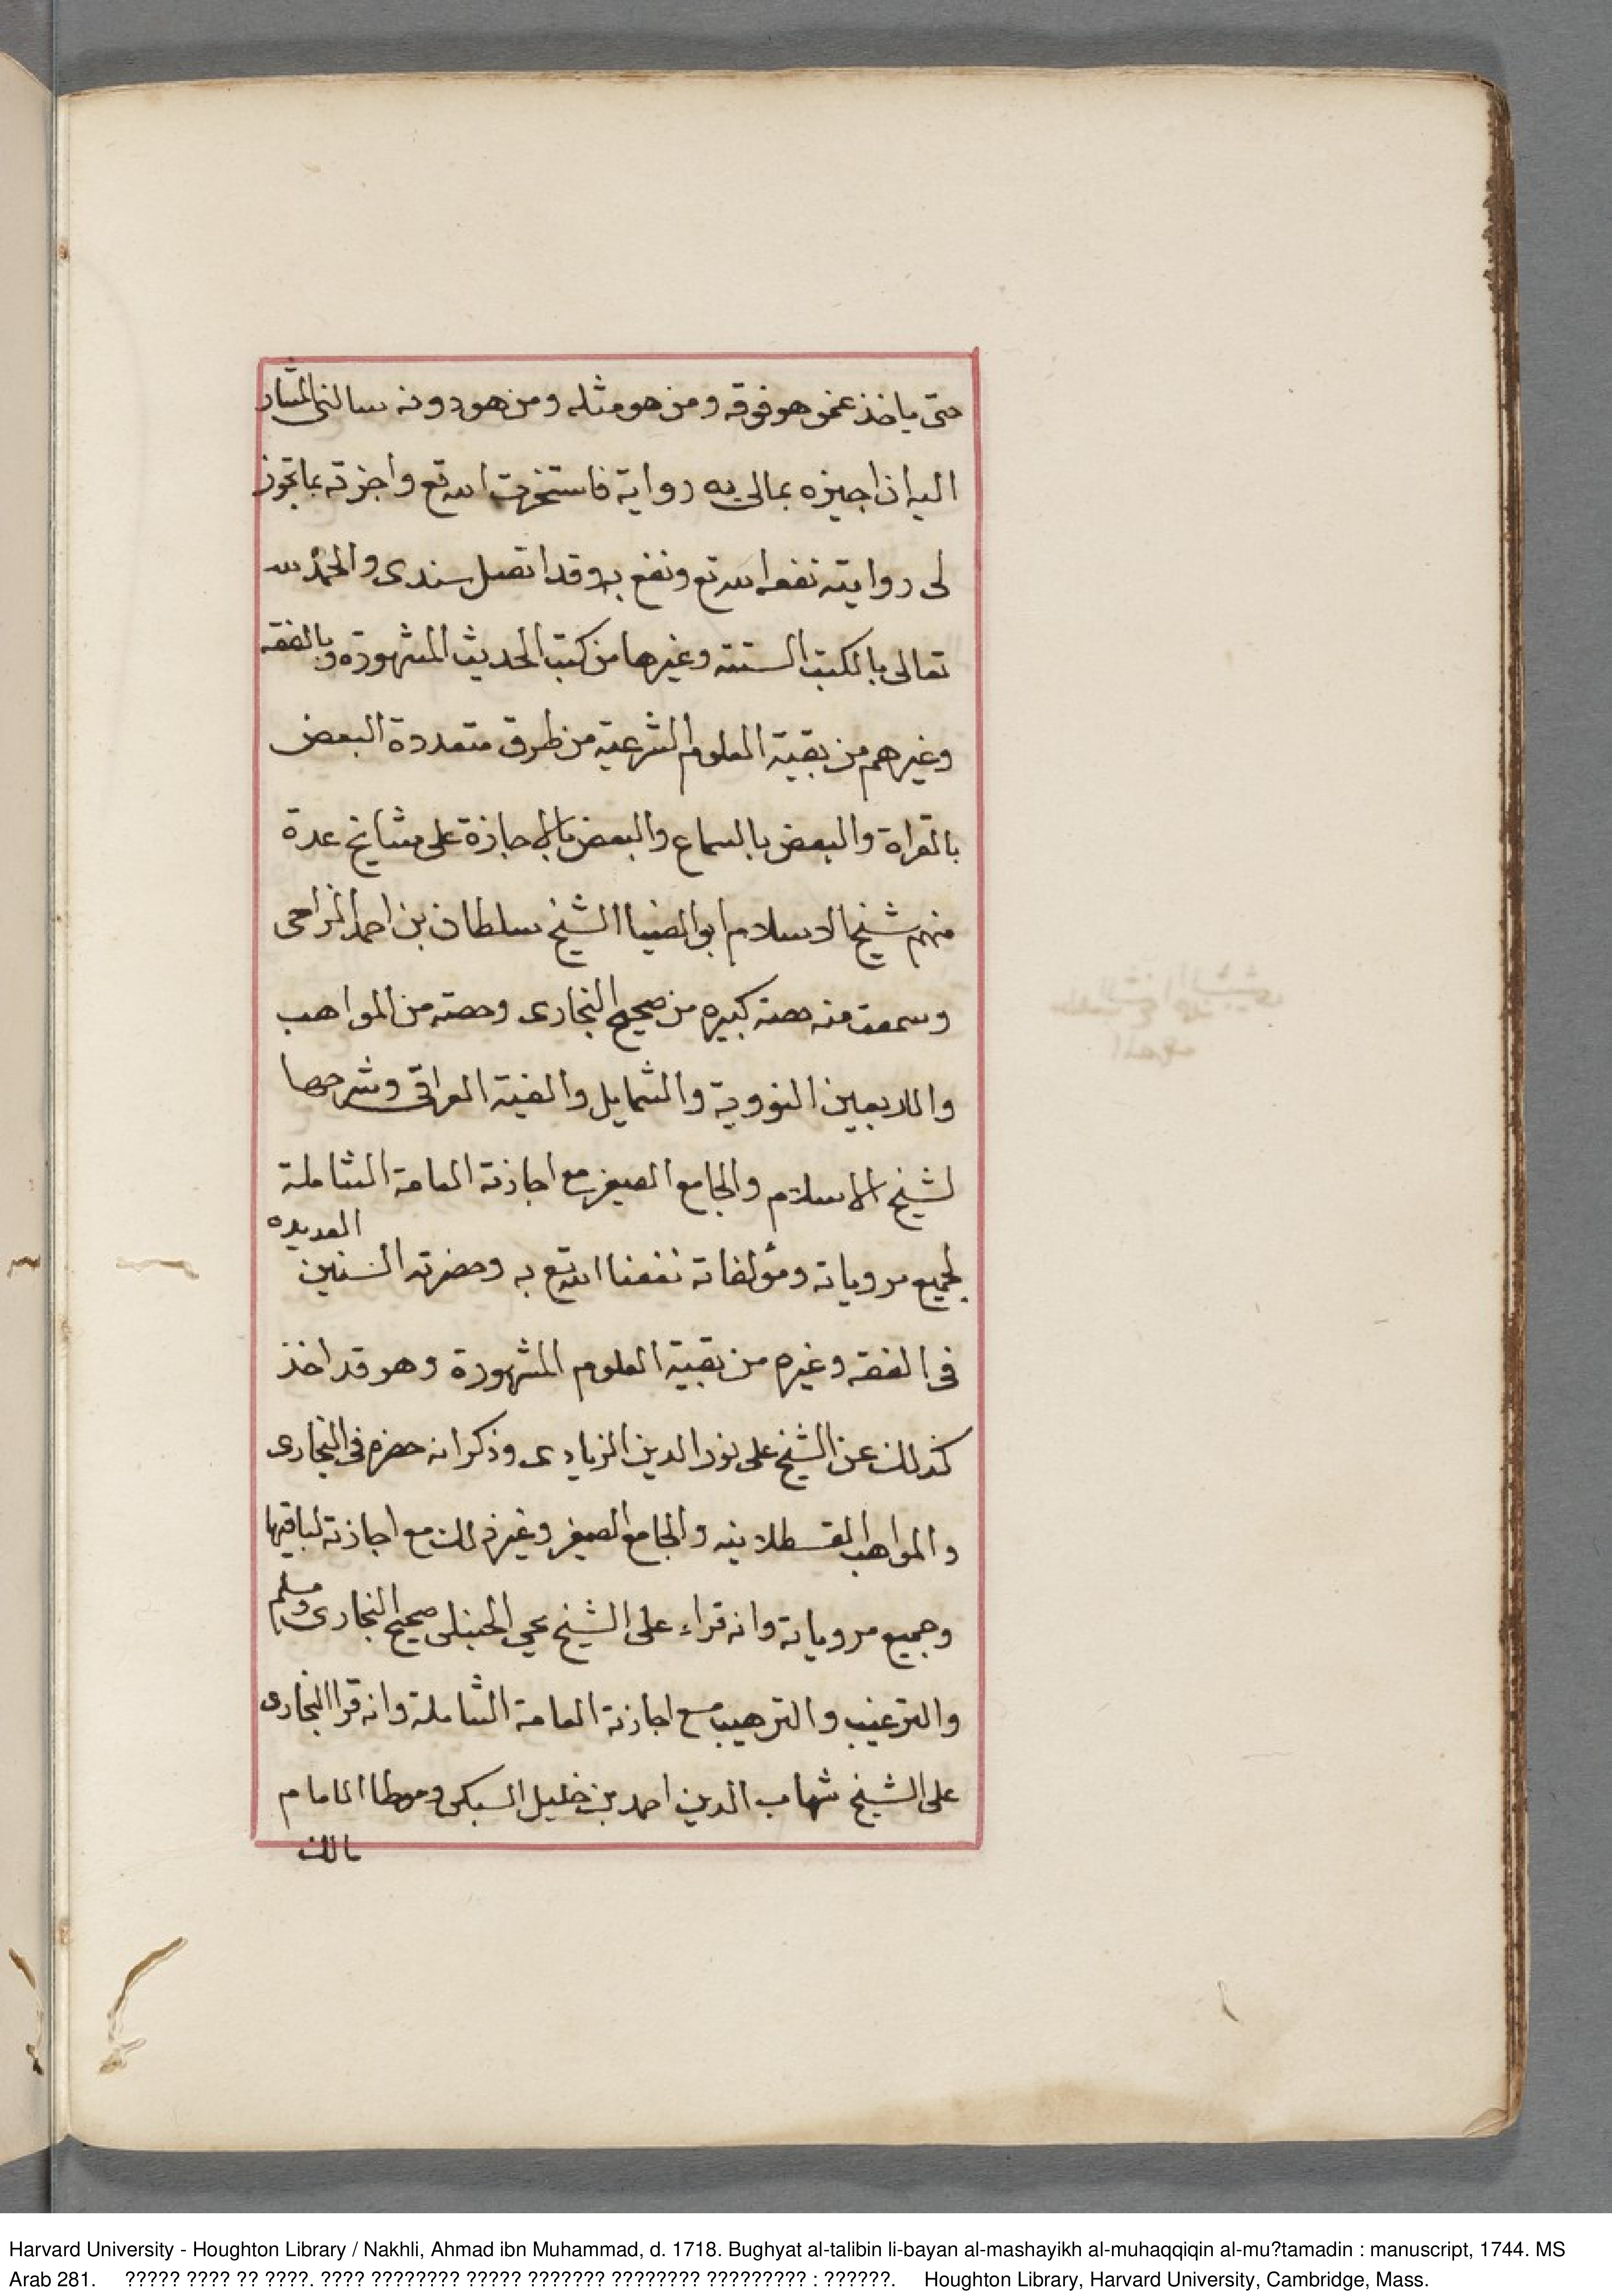 حتى ياخذ عمن هو فوقه ومن هو مثله ومن هو دونه سالنى المشار
اليه ان اجيزه بمالى به رواية فاستخرت الله تع واجزته بما تجوز
لى روايته نفعه الله تع ونفع به وقد اتصل سندى والحمد لله
تعالى بالكتب الستته وغيرها من كتب الحديث المشهورة وبالفقه
وغيرهم من بقية العلوم الشرعية من طرق متعددة البعض
بالقراة والبعض بالسماع والبعض بالاجازة على مشايخ عدة
منهم شيخ الاسلام ابو الضيا الشيخ سلطان بن احمد المزاحى
وسمعت منه حصة كبيره من صحيح البخارى وحصته من المواهب
والاربعين النووية والشمايل والفية العراقى وشرحها
لشيخ الاسلام والجامع الصغير مع اجازته العامة الشاملة
العديده
لجميع مروياته ومؤلفاته نفعنا الله تع به وحضرته السنين
فى الفقه وغيره من بقية العلوم المشهورة وهو قد اخذ
كذلك عن الشيخ على نور الدين الزيادى وذكر انه حضره فى البخارى
والمواهب القسطلانيه والجامع الصغير وغير ذلك مع اجازته لباقيها
وجميع مروياته وانه قراء على الشيخ يحيى الحنبلى صحيح البخارى ومسلم
والترغيب والترهيب مع اجازته العامة الشاملة وانه قرا البخارى
على الشيخ شهاب الدين احمد بن خليل السبكى وموطا الامام
مالك
Harvard University - Houghton Library / Nakhli, Ahmad ibn Muhammad, d. 1718. Bughyat al-talibin li-bayan al-mashayikh al-muhaqqiqin al-mu?tamadin : manuscript, 1744. MS
Arab 281. ????? ???? ?? ????. ???? ???????? ????? ??????? ???????? ????????? : ??????. Houghton Library, Harvard University, Cambridge, Mass.